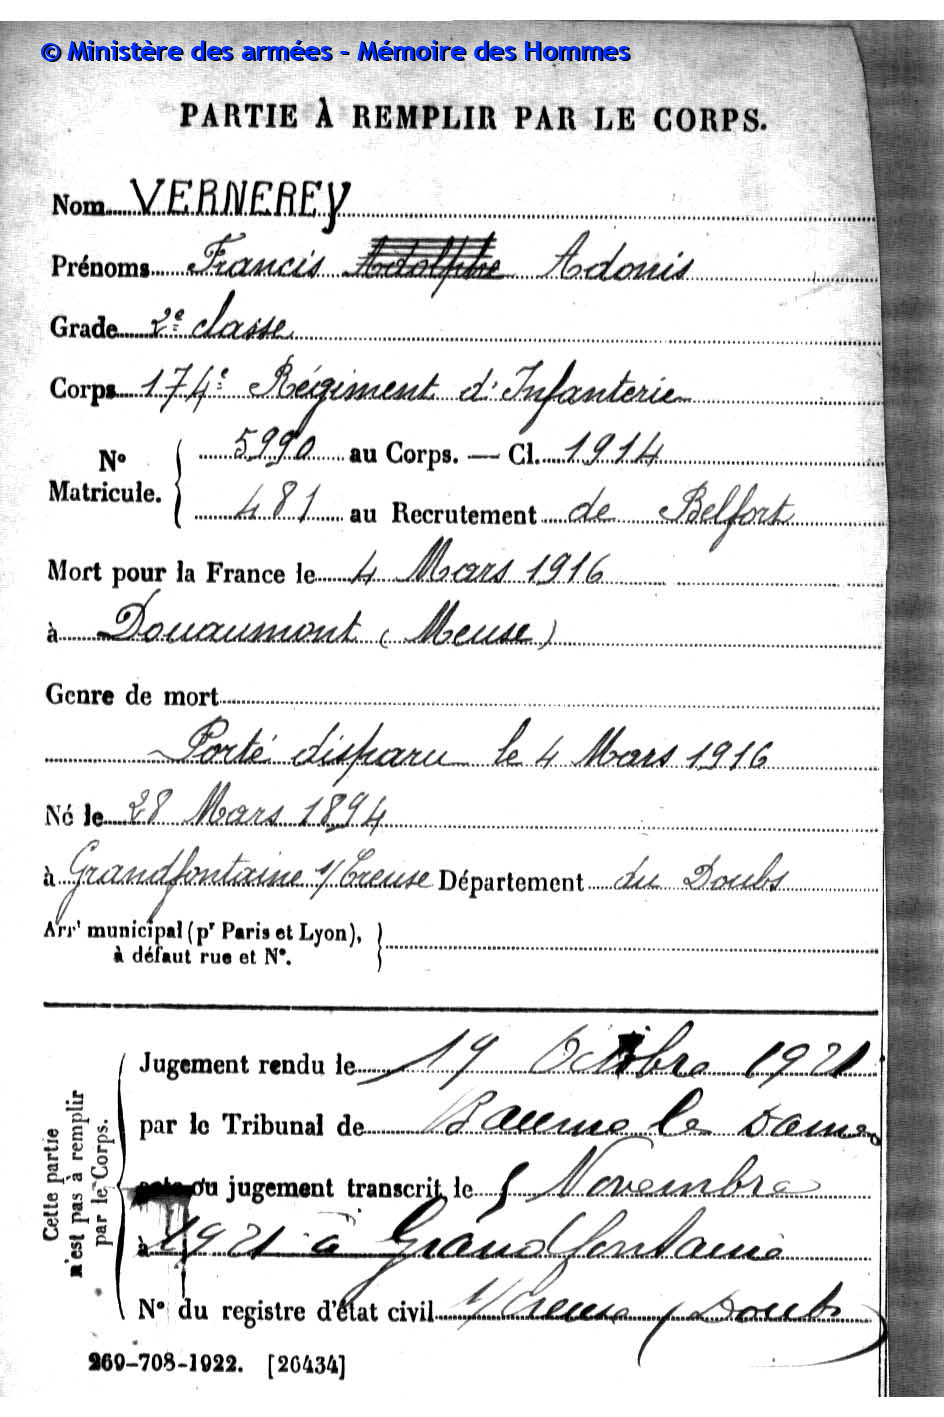 © Ministère des armées - Mémoire des Hommes
PARTIE À REMPLIR PAR LE CORPS.
Nom VERNEREY
Prénoms Francis Adolphe Adonis
Grade 2e classe
Corps 174e Régiment d'Infanterie
No Matricule. { 5990 au Corps. — Cl. 1914
481 au Recrutement de Belfort
Mort pour la France le 4 Mars 1916
à Douaumont (Meuse)
Genre de mort
Porté disparu le 4 Mars 1916
Né le 28 Mars 1894
à Grandfontaine s/Creuse Département du Doubs
Arrt municipal (pr Paris et Lyon), }
à défaut rue et No.
Cette partie n'est pas à remplir par le Corps. {
Jugement rendu le 19 Octobre 1921
par le Tribunal de Baume les Dames
acte ou jugement transcrit le 5 Novembre
à 1921 à Grandfontaine
No du registre d'état civil s/Creuse Doubs
269-708-1922. [26434]